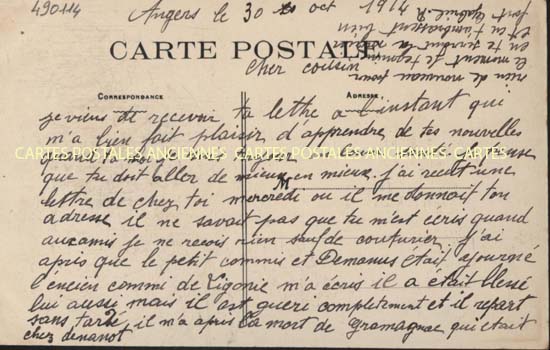 490114
Angers le 30 oct 191
CARTE POSTALE
Cher cousin
CORRESPONDANCE
ADRESSE
je viens de recevoir ta lettre a l'instant qui
m'a bien fait plaisir d'apprendre de tes nouvelles
CARTES POSTALES ANCIENNES - CARTES POSTALES ANCIENNES - CARTES
que tu doit aller de mieux en mieux. j'ai recut une
M
lettre de chez toi mercredi ou il me donnait ton
adresse il ne savait pas que tu m'est ecris quand
aux amis je ne recois rien sauf de couturier j'ai
apris que le petit commis et Demanus était
l'encien commi de Ligonie m'a écris il a était blessé
lui aussi mais il est gueri completement et il repart
sans tardé, il m'a apris la mort de gramagnac qui était
chez denanot
rien de nouveau pour
le moment je termine
en te
et en t'embrassant bien
fort Gabriel. R